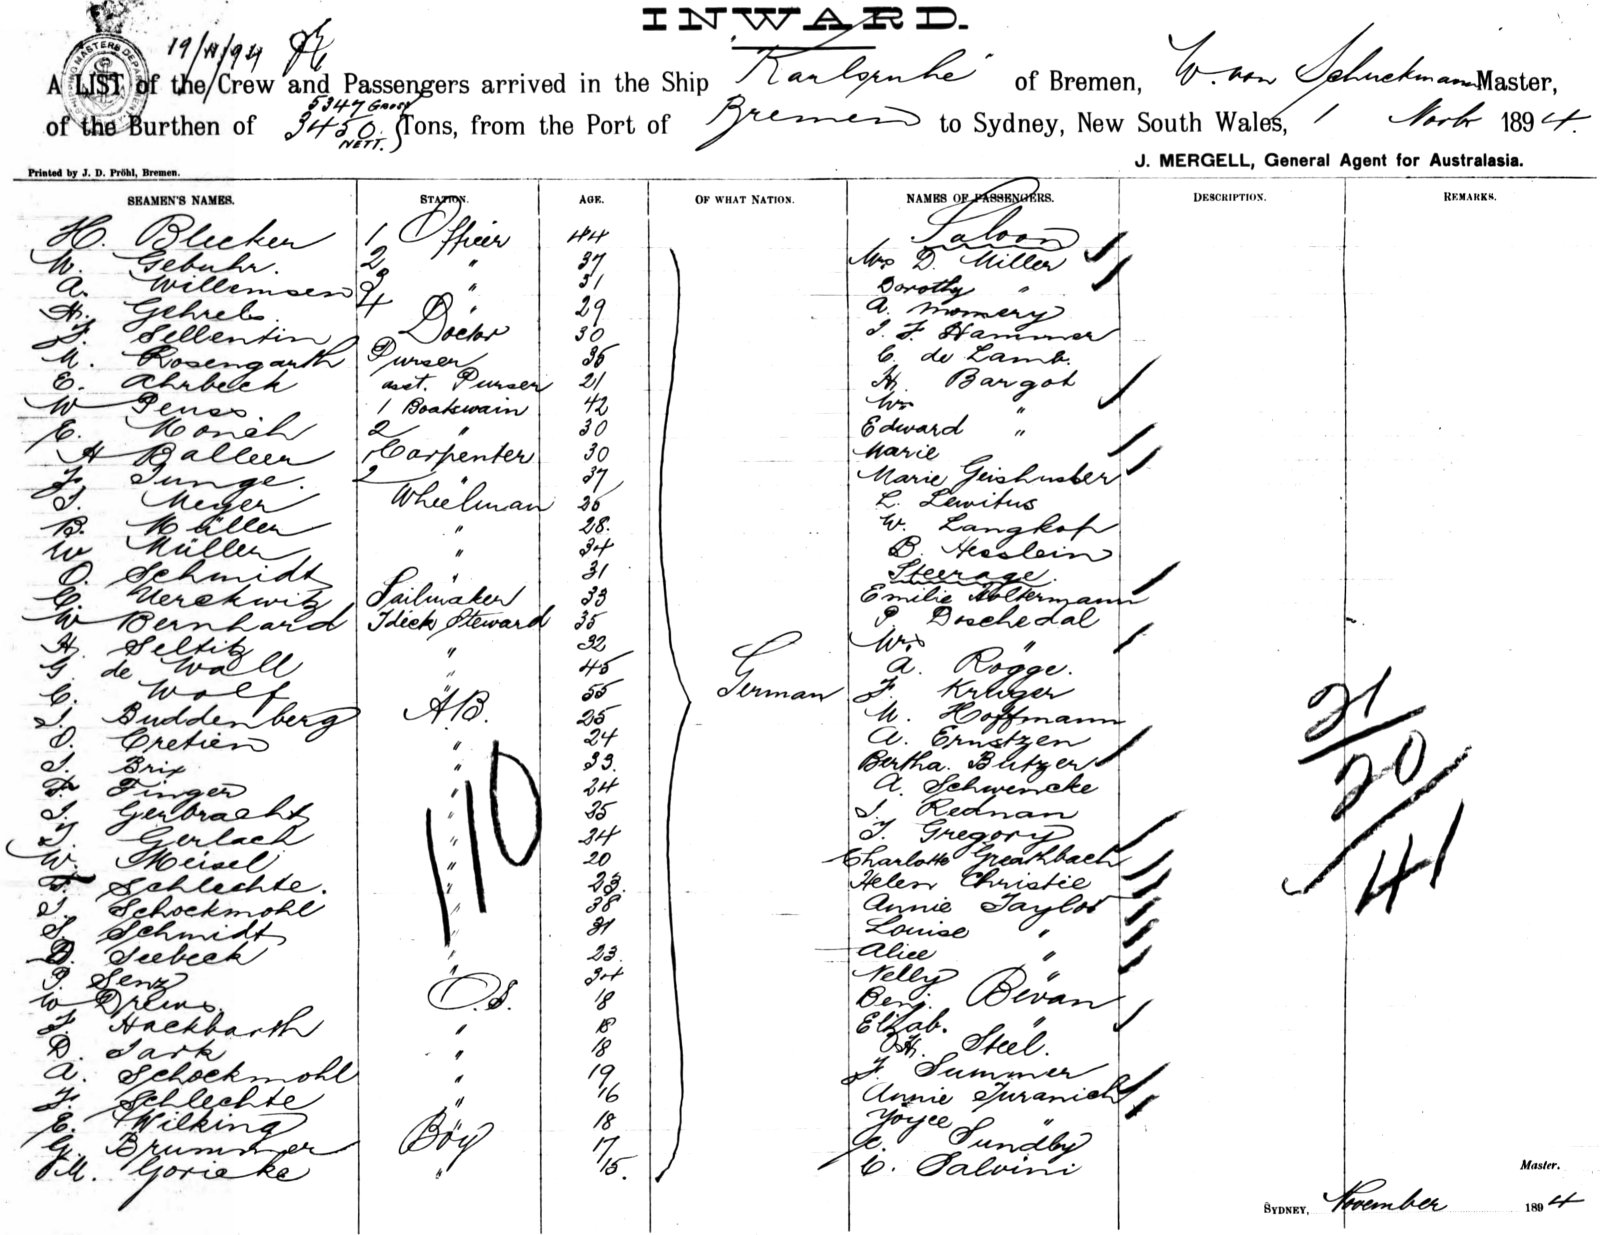 INWARD.
19/11/94
A LIST of the Crew and Passengers arrived in the Ship Karlsruhe of Bremen, W. von Schuckmann Master,
5347 Gross
of the Burthen of 3450 Tons, from the Port of Bremen to Sydney, New South Wales, 1 Novbr 1894.
NETT.
J. MERGELL, General Agent for Australasia.
Printed by J. D. Pröhl, Bremen.
SEAMEN'S NAMES. STATION. AGE. OF WHAT NATION. NAMES OF PASSENGERS. DESCRIPTION. REMARKS.
Saloon
H. Blecker 1 Officer 44
W. Gebuhr. 2 " 37 Mrs D. Miller
A. Willemsen 3 " 31 Dorothy "
H. Gehrels 4 " 29 A. Momery
F. Sellentin Doctor 30 I. F. Hammer
M. Rosengarth Purser 35 C. de Lamb.
E. Ahrbeck asst. Purser 21 H. Bargot
W Peuss. 1 Boatswain 42 Mrs "
E. Monch 2 " 30 Edward "
H Balleer 1 Carpenter 30 Marie
F. Junge. 2 " 37 Marie Geishuster
I. Meyer Wheelman 25 L. Lewitus
B. Müller " 28. W. Langkop
W Müller " 34 B. Hesslein
O. Schmidt " 31 Steerage.
C. Uerckwitz Sailmaker 33 Emilie Noltermann
W Bernhard Ideck Steward 35 P Doschedal
H. Seltitz " 32 Mrs "
G. de Wall " 45 A. Rogge.
C. Wolf " 55 German F. Kruger
I. Buddenberg A.B. 25 M. Hoffmann
O. Cretien " 24 A. Ernstzen
I. Brix " 33. Bertha Butzer
F. Finger " 24 A. Schwencke
I. Gerbracht " 25 I. Rednan
I. Gerlach " 24 T. Gregory
W. Meisel " 20 Charlotte Greathbach
F. Schlechte. " 23. Helen Christie
I. Schockmohl " 38 Annie Taylor
S. Schmidt " 31 Louise "
D. Seebeck " 23. Alice "
P. Senz " 34 Nelly "
W Drews. O.S. 18 Benj. Bevan
F. Hackbarth " 18 Elizab. "
D. Jark " 18 H. Steel.
A. Schockmohl " 19 F. Summer
F. Schlechte " 16 Annie Turanich
E. Wilking " 18 Yoyce "
G. Brummer Boy 17 C. Sundby
M. Gorieke " 15. C. Salvini
110
21
20
41
Master.
SYDNEY, November 1894